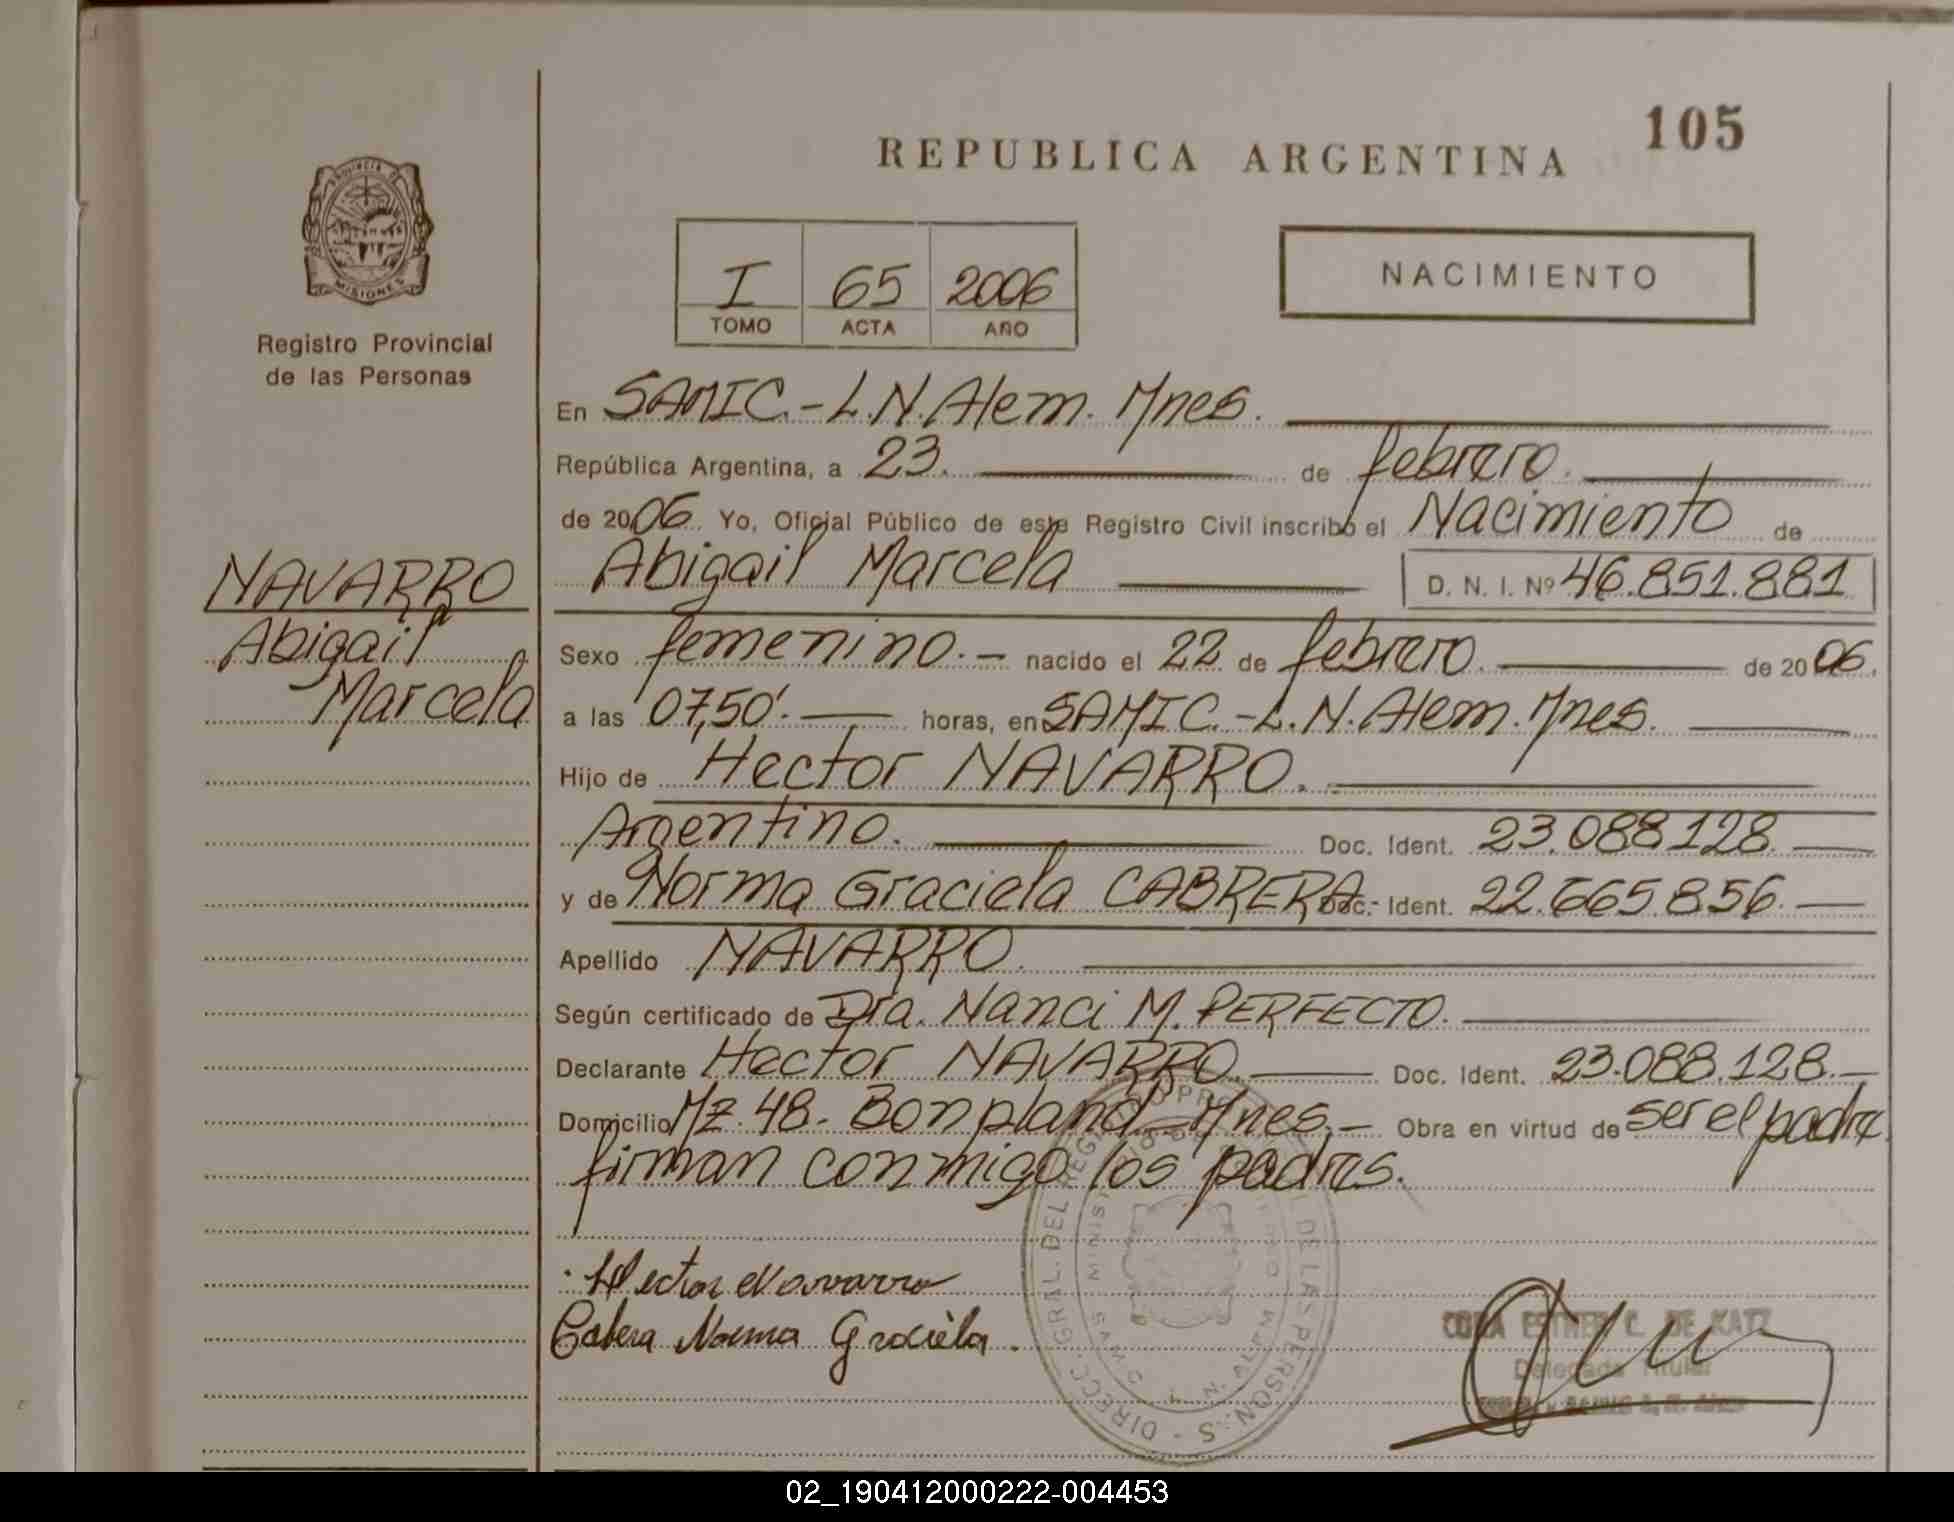 105
REPUBLICA ARGENTINA
PROVINCIA DE
MISIONES
Registro Provincial
de las Personas
I 65 2006
TOMO ACTA AÑO
NACIMIENTO
En SAMIC.-L.N.Alem. Mnes.
República Argentina, a 23. de febrero.
de 2006 Yo, Oficial Público de este Registro Civil inscribo el Nacimiento de
Abigail Marcela D. N. I. Nº 46.851.881
NAVARRO
Abigail
Marcela
Sexo femenino.- nacido el 22 de febrero. de 2006.
a las 07,50'. horas, en SAMIC.-L.N.Alem. Mnes.
Hijo de Hector NAVARRO.
Argentino. Doc. Ident. 23.088.128.
y de Norma Graciela CABRERA.- Doc. Ident. 22.665.856.
Apellido NAVARRO.
Según certificado de Dra. Nanci M. PERFECTO.
Declarante Hector NAVARRO. Doc. Ident. 23.088.128.-
Domicilio Mz. 48- Bonpland- Mnes.- Obra en virtud de ser el padre
firman conmigo los padres.
Hector Navarro
Cabrera Norma Graciela.
DE KATZ
Delegada Titular
DIRECC. GRAL. DEL REGISTRO DE LAS PERSONAS
L. N. ALEM
02_190412000222-004453